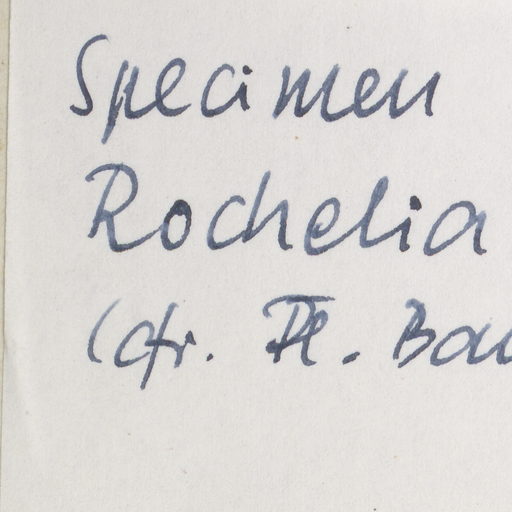 Specimen
Rochelia
(cfr. Fl.